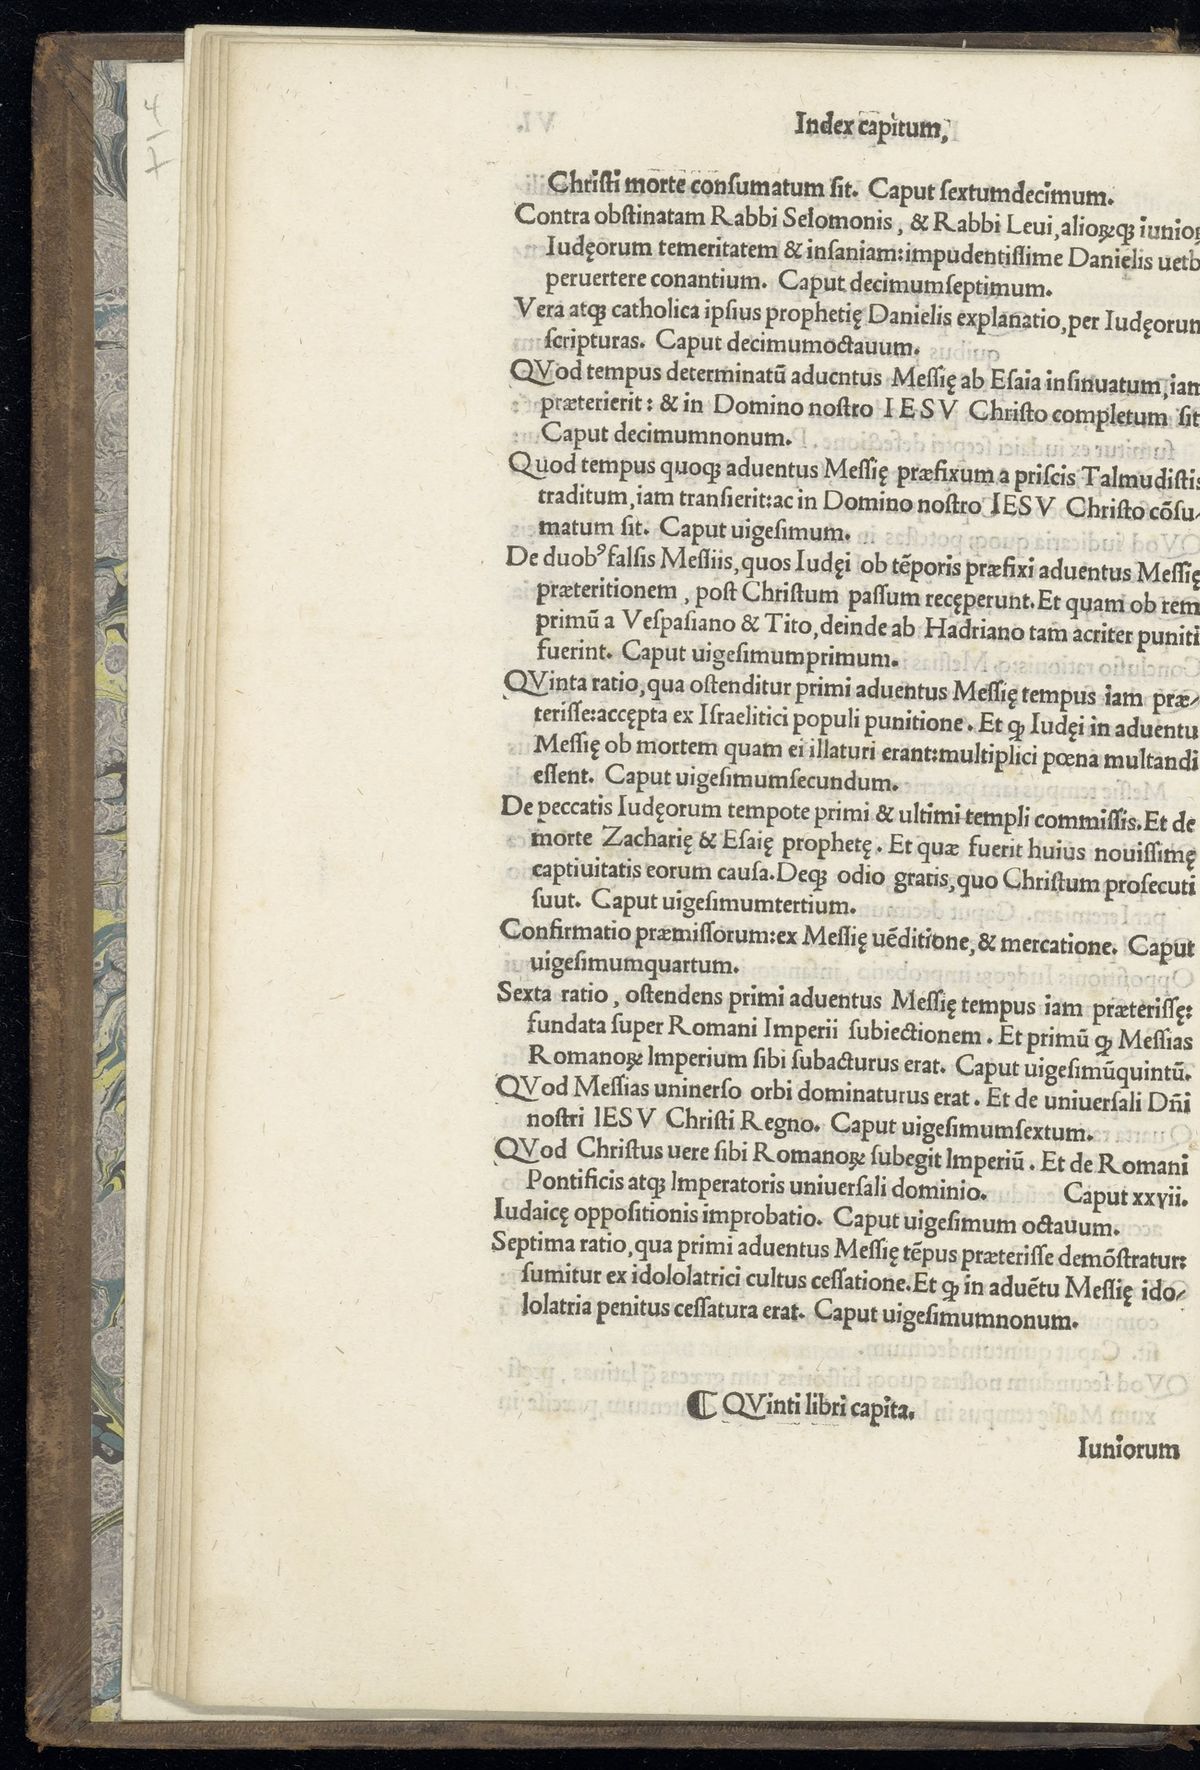 Index capitum,
Chriſti morte conſumatum ſit. Caput ſextumdecimum.
Contra obſtinatam Rabbi Selomonis, & Rabbi Leui, alioꝝqꝫ iunioꝝ
Iudęorum temeritatem & inſaniam:impudentiſſime Danielis uetb
peruertere conantium. Caput decimumſeptimum.
Vera atqꝫ catholica ipſius prophetię Danielis explanatio, per Iudęorum
ſcripturas. Caput decimumoctauum.
QVod tempus determinatū aduentus Meſſię ab Eſaia inſinuatum, iam
præterierit: & in Domino noſtro IESV Chriſto completum ſit
Caput decimumnonum.
Quod tempus quoqꝫ aduentus Meſſię præfixum a priſcis Talmudiſtis
traditum, iam tranſierit:ac in Domino noſtro IESV Chriſto cōſu⸗
matum ſit. Caput uigeſimum.
De duobꝰ falſis Meſſiis, quos Iudęi ob tēporis præfixi aduentus Meſſię
præteritionem, poſt Chriſtum paſſum recęperunt. Et quam ob rem
primū a Veſpaſiano & Tito, deinde ab Hadriano tam acriter puniti
fuerint. Caput uigeſimumprimum.
QVinta ratio, qua oſtenditur primi aduentus Meſſię tempus iam præ⸗
teriſſe:accępta ex Iſraelitici populi punitione. Et ꝙ Iudęi in aduentu
Meſſię ob mortem quam ei illaturi erant:multiplici pœna multandi
eſſent. Caput uigeſimumſecundum.
De peccatis Iudęorum tempote primi & ultimi templi commiſſis. Et de
morte Zacharię & Eſaię prophetę. Et quæ fuerit huius nouiſſimę
captiuitatis eorum cauſa. Deqꝫ odio gratis, quo Chriſtum proſecuti
ſuut. Caput uigeſimumtertium.
Confirmatio præmiſſorum:ex Meſſię uēditione, & mercatione. Caput
uigeſimumquartum.
Sexta ratio, oſtendens primi aduentus Meſſię tempus iam præteriſſę:
fundata ſuper Romani Imperii ſubiectionem. Et primū ꝙ Meſſias
Romanoꝝ Imperium ſibi ſubacturus erat. Caput uigeſimūquintū.
QVod Meſſias uninerſo orbi dominaturus erat. Et de uniuerſali Dñi
noſtri IESV Chriſti Regno. Caput uigeſimumſextum.
QVod Chriſtus uere ſibi Romanoꝝ ſubegit Imperiū. Et de Romani
Pontificis atqꝫ Imperatoris uniuerſali dominio. Caput xxvii.
Iudaicę oppoſitionis improbatio. Caput uigeſimum octauum.
Septima ratio, qua primi aduentus Meſſię tēpus præteriſſe demōſtratur:
ſumitur ex idololatrici cultus ceſſatione. Et ꝙ in aduētu Meſſię ido⸗
lolatria penitus ceſſatura erat. Caput uigeſimumnonum.
¶ QVinti libri capita.
Iuniorum